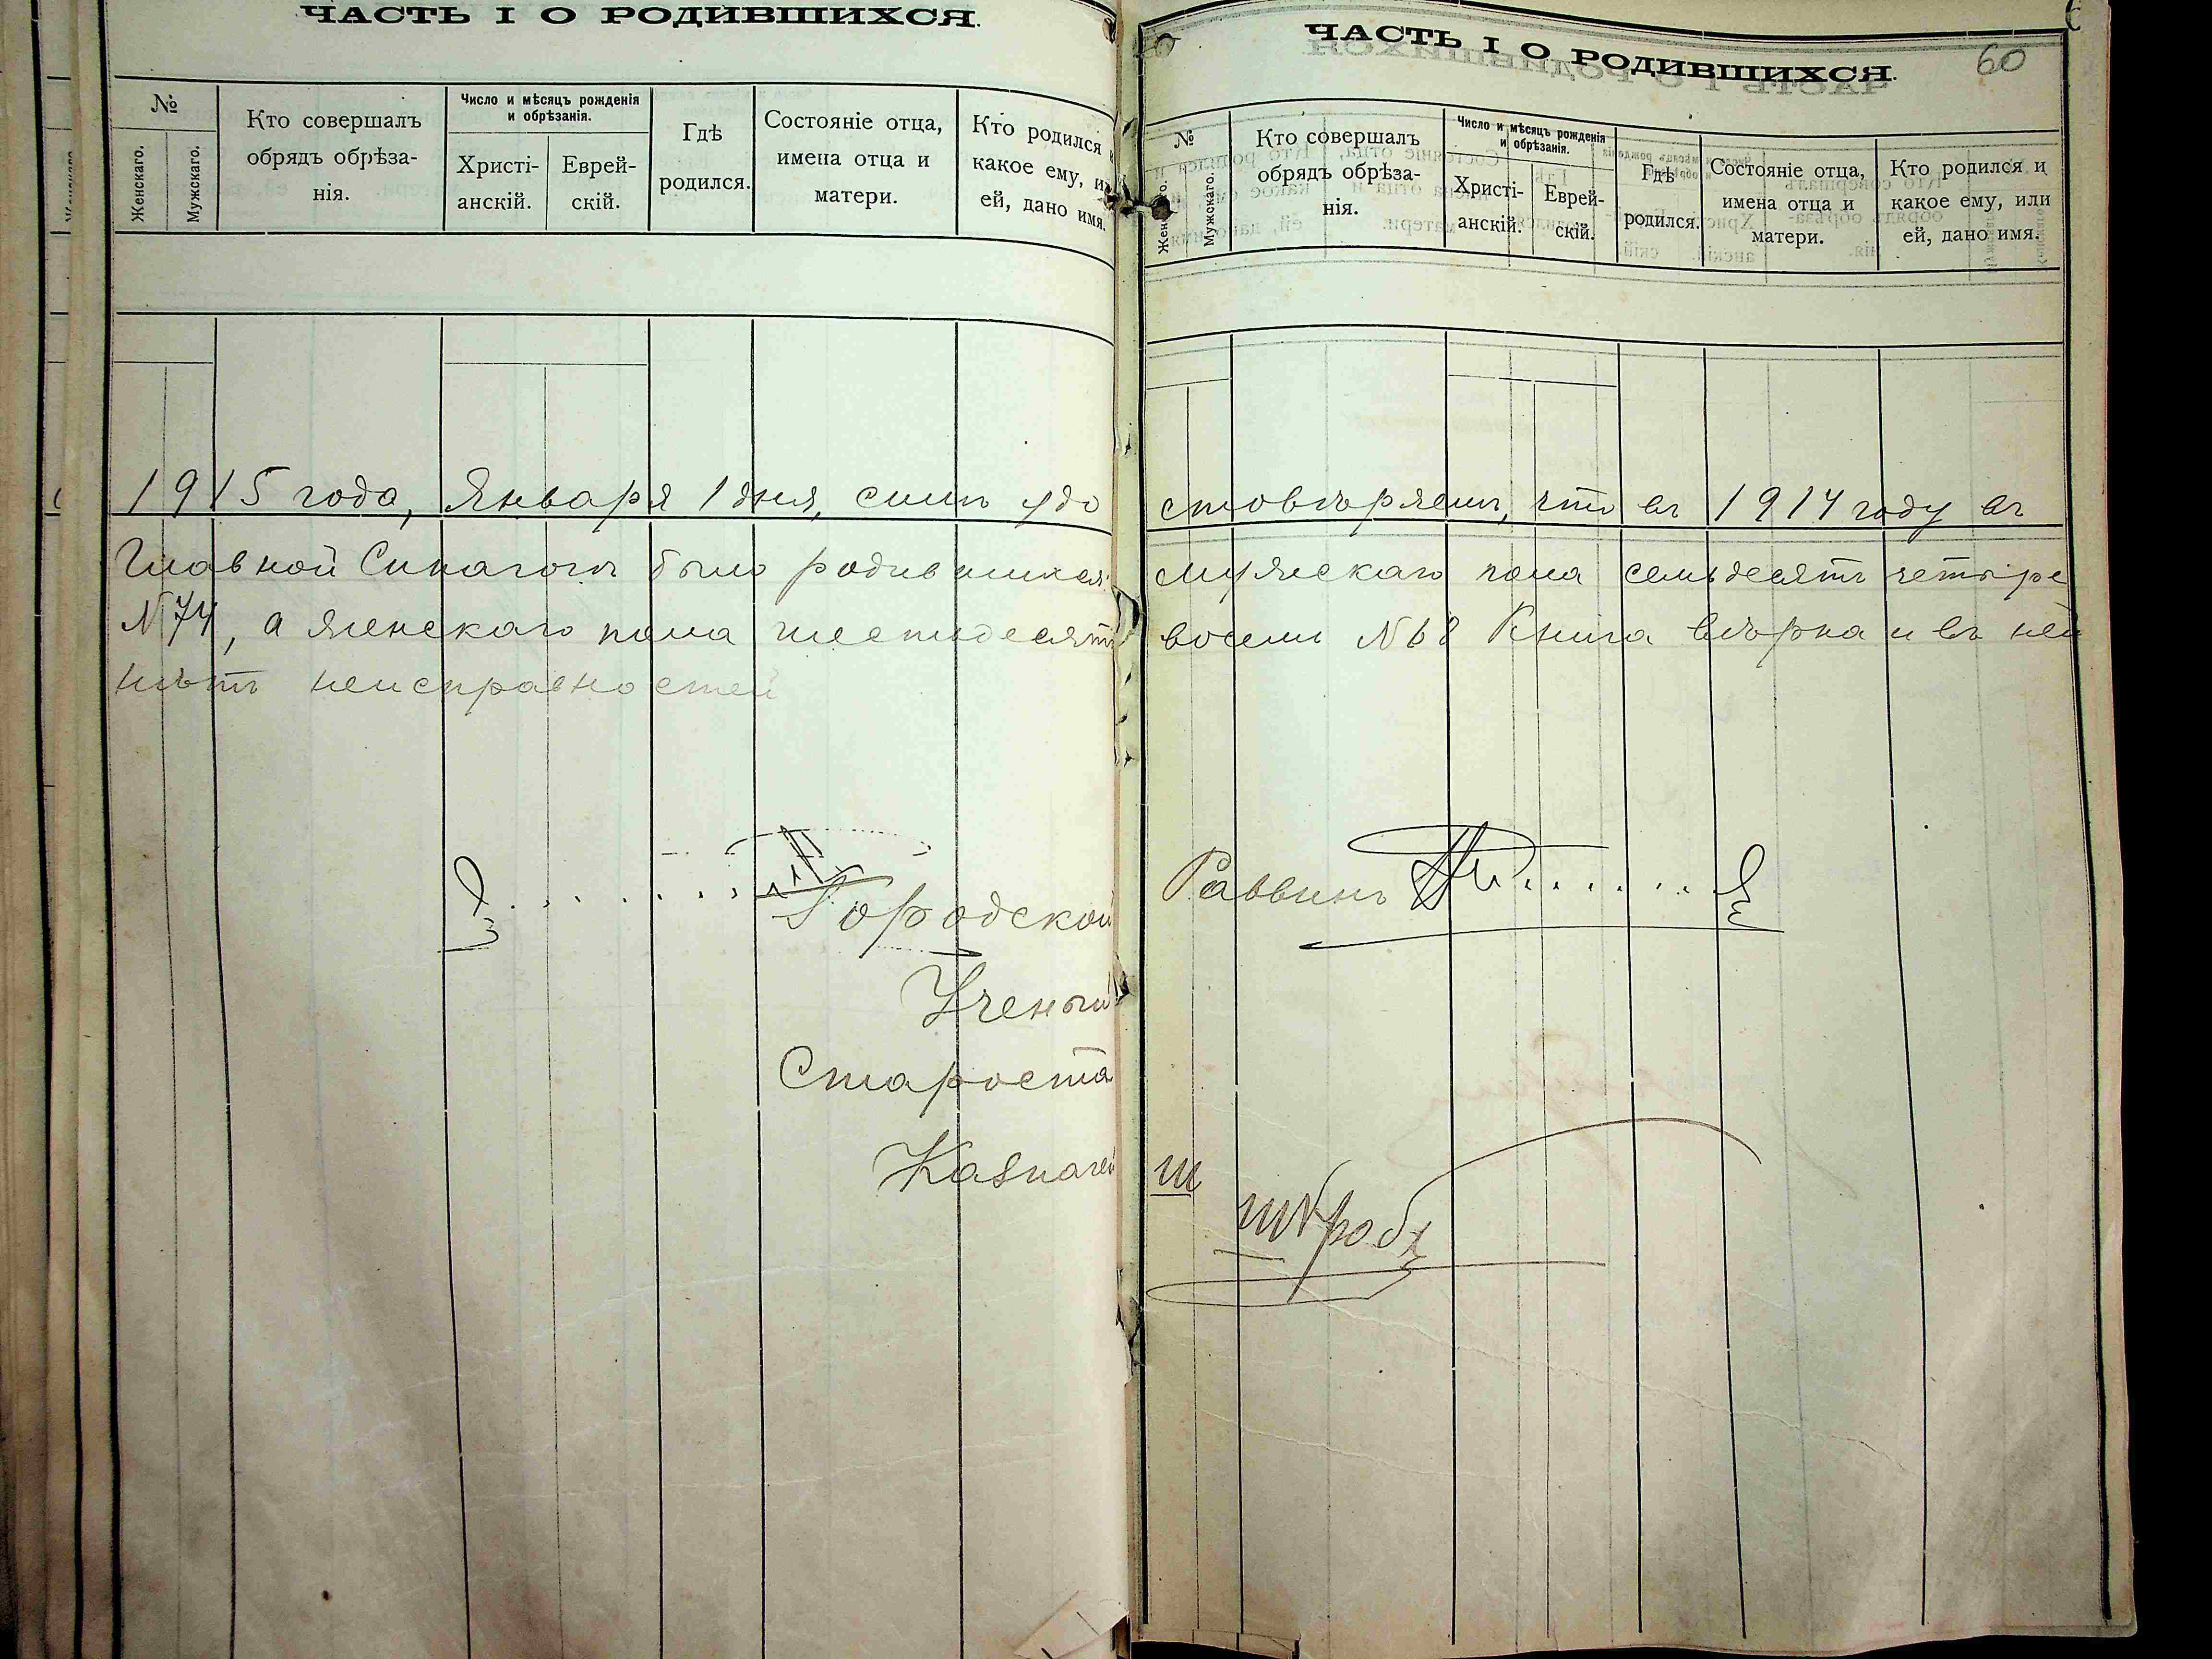 ЧАСТЬ I О РОДИВШИХСЯ.
№
Женскаго.
Мужскаго.
Кто совершалъ
обрядъ обрѣза-
нія.
Число и мѣсяцъ рожденія
и обрѣзанія.
Христі-
анскій.
Еврей-
скій.
Гдѣ
родился.
Состояніе отца,
имена отца и
матери.
Кто родился и
какое ему, или
ей, дано имя.
ЧАСТЬ I О РОДИВШИХСЯ.
60
№
Женскаго.
Мужскаго.
Кто совершалъ
обрядъ обрѣза-
нія.
Число и мѣсяцъ рожденія
и обрѣзанія.
Христі-
анскій.
Еврей-
скій.
Гдѣ
родился.
Состояніе отца,
имена отца и
матери.
Кто родился и
какое ему, или
ей, дано имя.
1915 года, Января 1 дня, симъ удо стовѣряемъ, что въ 1914 году въ
Главной Синагогѣ было родившихся: мужескаго пола семьдесятъ четыре
N 74, а женскаго пола шестьдесятъ восемь N 68 Книга вѣрна и въ ней
нѣтъ неисправностей
Городской Раввинъ
Ученый
Староста
Казначей